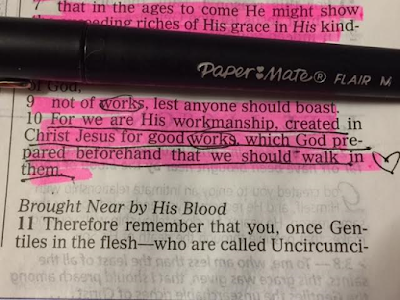 7 that in the ages to come He might show
exceeding riches of His grace in His kind-
Paper Mate® FLAIR M
of God,
9 not of works, lest anyone should boast.
10 For we are His workmanship, created in
Christ Jesus for good works, which God pre-
pared beforehand that we should walk in
them.
Brought Near by His Blood
11 Therefore remember that you, once Gen-
tiles in the flesh—who are called Uncircumci-